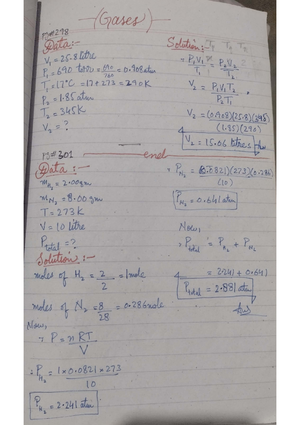 (Gases)
P#298
Data:-
V₁ = 25.8 litre
T₁ = 690 torr = 690/760 = 0.908 atm
T₁ = 17°C = 17+273 = 290K
P₂ = 1.85 atm
T₂ = 345K
V₂ = ?
Solution:-
= P₁V₁/T₁ = P₂V₂/T₂
V₂ = P₁V₁T₂/P₂T₁
V₂ = (0.908)(25.8)(345)/(1.85)(290)
V₂ = 15.06 litres
P#301
end
Data:-
m H₂ = 2.00gm
m N₂ = 8.00gm
T = 273K
V = 10 litre
P total = ?
Solution:-
moles of H₂ = 2/2 = 1mole
moles of N₂ = 8/28 = 0.286mole
Now,
∵ P = nRT/V
∴ P H₂ = 1×0.0821×273/10
P H₂ = 2.241 atm
∵ P N₂ = (0.0821)(273)(0.286)/(10)
P N₂ = 0.641 atm
Now,
∵ P total = P H₂ + P N₂
= 2.241 + 0.641
P total = 2.881 atm